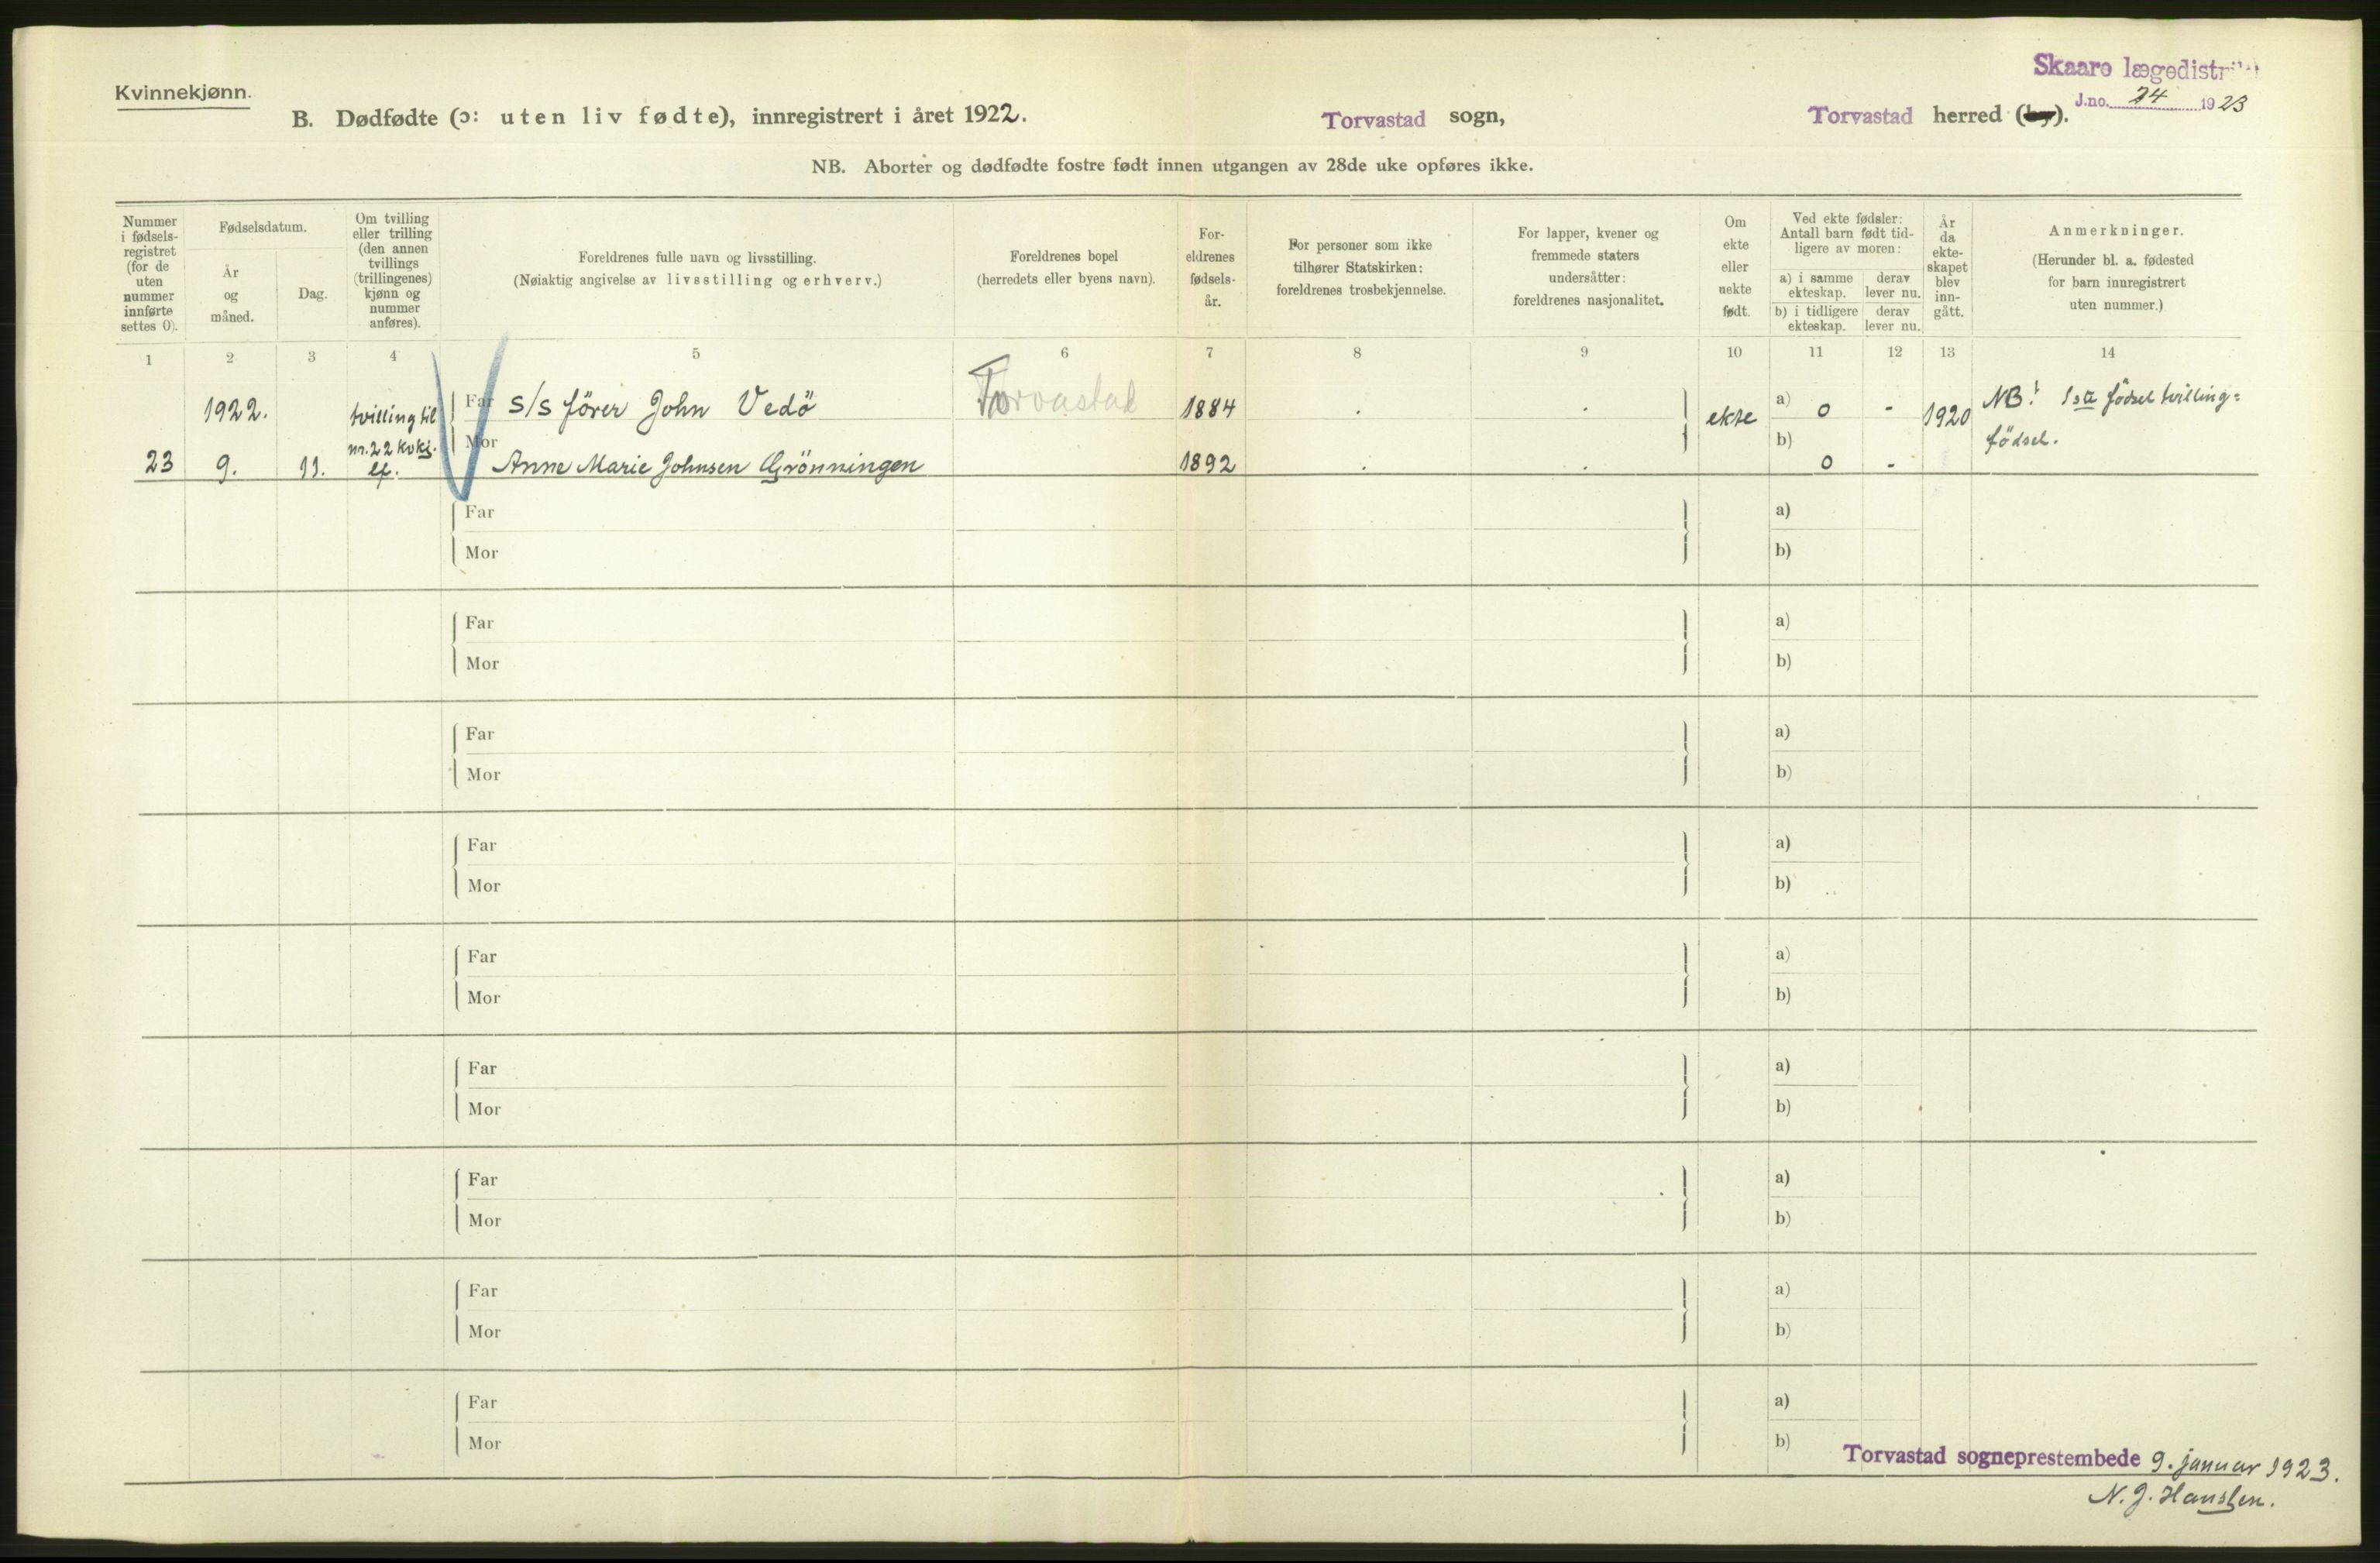 Kvinnekjønn.
Skaare lægedistri
J.no. 24 1923
B. Dødfødte (ɔ: uten liv fødte), innregistrert i året 1922. Torvastad sogn, Torvastad herred (by).
NB. Aborter og dødfødte fostre født innen utgangen av 28de uke opføres ikke.
Nummer
i fødsels-
registret
(for de
uten
nummer
innførte
settes 0).
Fødselsdatum.
År
og
måned.
Dag.
Om tvilling
eller trilling
(den annen
tvillings
(trillingenes)
kjønn og
nummer
anføres).
Foreldrenes fulle navn og livsstilling.
(Nøiaktig angivelse av livsstilling og erhverv.)
Foreldrenes bopel
(herredets eller byens navn).
For-
eldrenes
fødsels-
år.
For personer som ikke
tilhører Statskirken:
foreldrenes trosbekjennelse.
For lapper, kvener og
fremmede staters
undersåtter:
foreldrenes nasjonalitet.
Om
ekte
eller
uekte
født.
Ved ekte fødsler:
Antall barn født tid-
ligere av moren:
a) i samme
ekteskap.
derav
lever nu.
b) i tidligere
ekteskap.
derav
lever nu.
År
da
ekte-
skapet
blev
inn-
gått.
Anmerkninger.
(Herunder bl. a. fødested
for barn innregistrert
uten nummer.)
1 2 3 4 5 6 7 8 9 10 11 12 13 14
1922. tvilling til Far s/s förer John Vedö Torvastad 1884 . . ekte a) 0 - 1920 NB! 1ste födsel tvilling=
nr. 22 kvkj. Mor b) födsel.
23 9. 11. lf. Anne Marie Johnsen Grönningen 1892 . . 0 -
Far a)
Mor b)
Far a)
Mor b)
Far a)
Mor b)
Far a)
Mor b)
Far a)
Mor b)
Far a)
Mor b)
Far a)
Mor b)
Far a)
Mor b)
Far a)
Mor b)
Torvastad sogneprestembede 9. januar 1923.
N. J. Hansten.